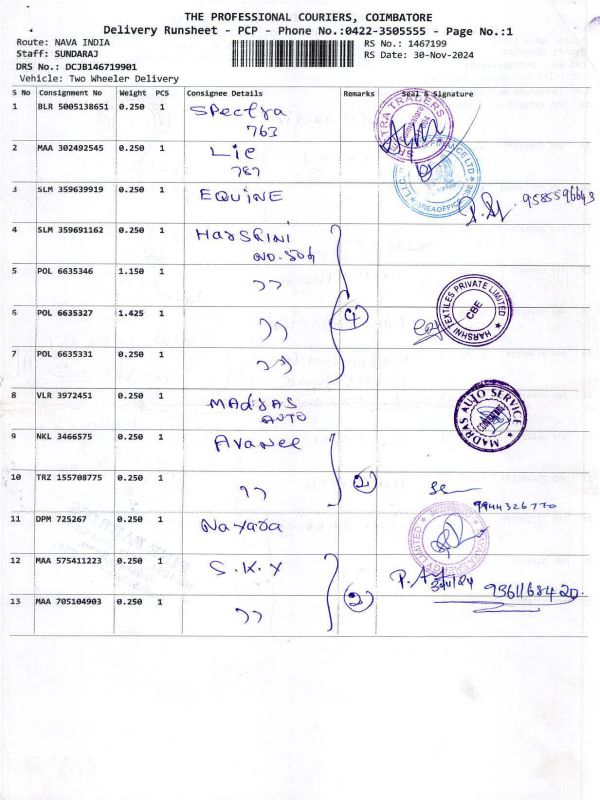 THE PROFESSIONAL COURIERS, COIMBATORE
Delivery Runsheet - PCP - Phone No.:0422-3505555 - Page No.:1
Route: NAVA INDIA
RS No.: 1467199
Staff: SUNDARAJ
RS Date: 30-Nov-2024
DRS No.: DCJB146719901
Vehicle: Two Wheeler Delivery
S No Consignment No Weight PCS Consignee Details Remarks Seal & Signature
1 BLR 5005138651 0.250 1 Spectra
763
2 MAA 302492545 0.250 1 Lic
787
3 SLM 359639919 0.250 1 EQUINE
9585596643
4 SLM 359691162 0.250 1 HarSRINI
NO.504
5 POL 6635346 1.150 1 ,,
HARSHNI TEXTILES PRIVATE LIMITED
CBE
6 POL 6635327 1.425 1 ,, (4)
7 POL 6635331 0.250 1 ,,
8 VLR 3972451 0.250 1 MAdrAS
AUTO
MADRAS AUTO SERVICE
COIMBATORE
9 NKL 3466575 0.250 1 Avanee
10 TRZ 155708775 0.250 1 ,, (2)
9944326770
11 DPM 725267 0.250 1 Nayara
12 MAA 575411223 0.250 1 S.K.Y
30/11/24
9361168420.
13 MAA 705104903 0.250 1 ,, (2)